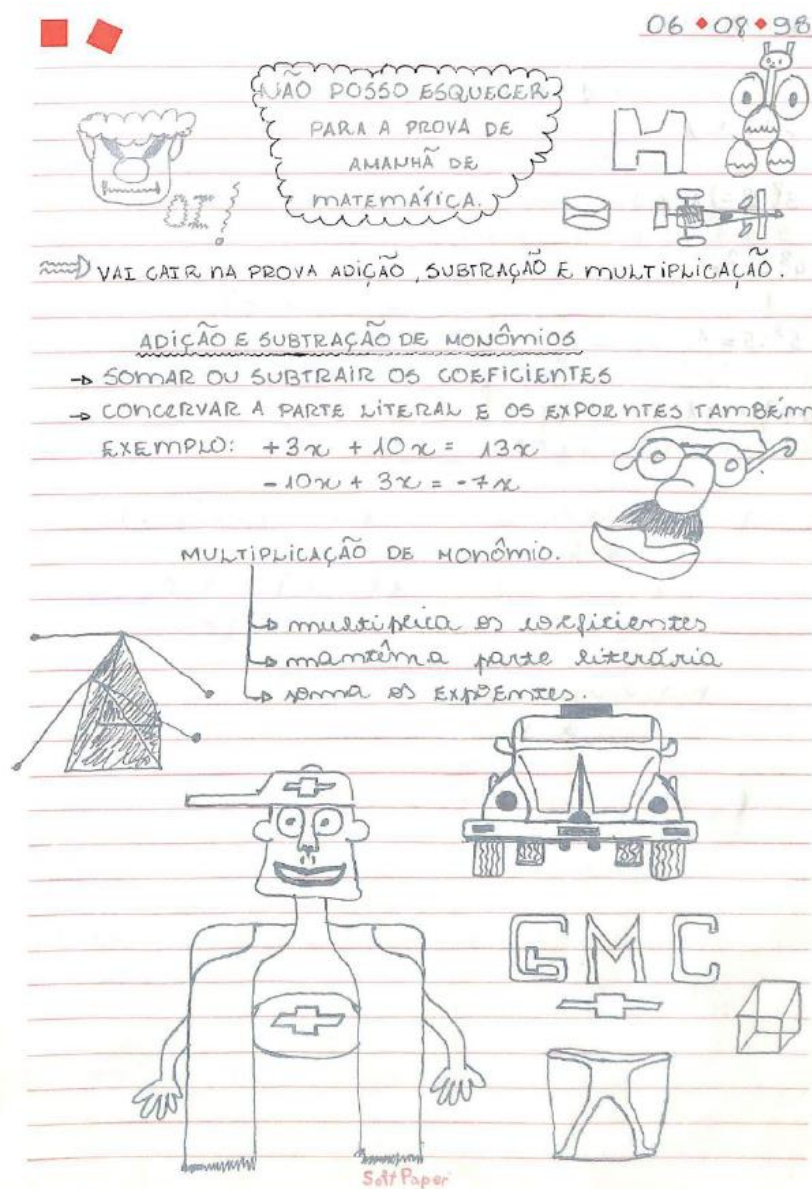 06 • 08 • 98
NÃO POSSO ESQUECER
PARA A PROVA DE
AMANHÃ DE
MATEMÁTICA.
H
OI!
VAI CAIR NA PROVA ADIÇÃO, SUBTRAÇÃO E MULTIPLICAÇÃO.
ADIÇÃO E SUBTRAÇÃO DE MONÔMIOS
→ SOMAR OU SUBTRAIR OS COEFICIENTES
→ CONCERVAR A PARTE LITERAL E OS EXPOENTES TAMBÉM
EXEMPLO: +3x + 10x = 13x
- 10x + 3x = -7x
MULTIPLICAÇÃO DE MONÔMIO.
→ multiplica os coeficientes
→ mantêm a parte literária
→ soma os EXPOENTES.
GMC
Soft Paper